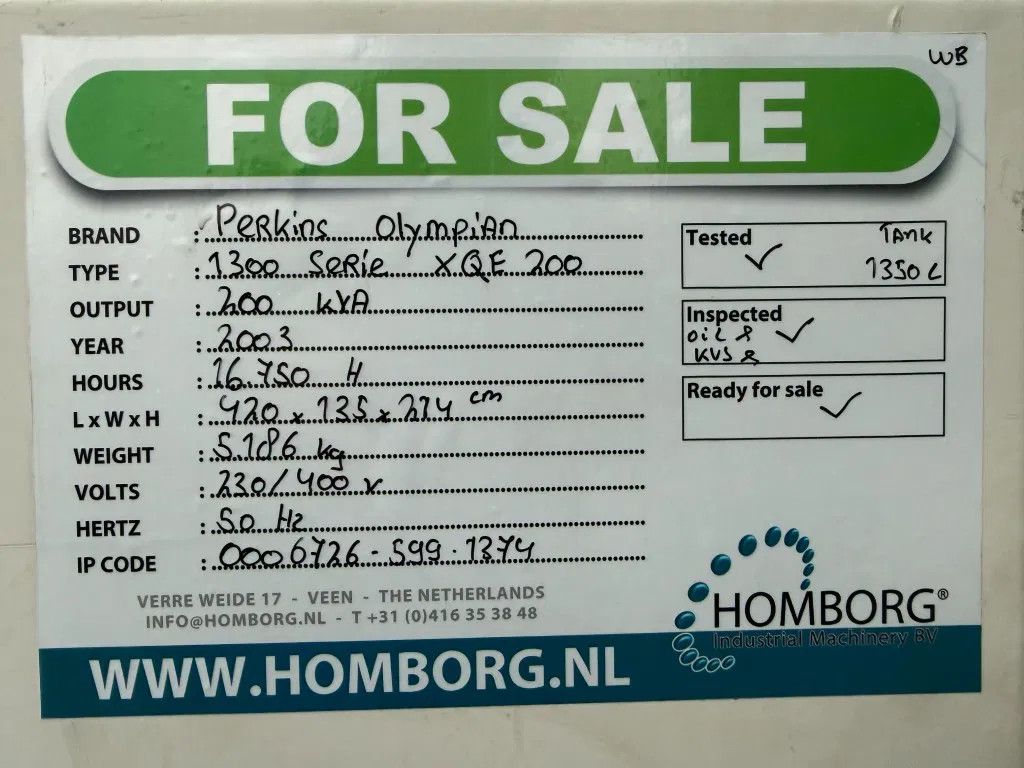 WB
FOR SALE
BRAND : Perkins Olympian
TYPE : 1300 Serie XQE 200
OUTPUT : 200 KVA
YEAR : 2003
HOURS : 16.750 H
L x W x H : 420 x 135 x 214 cm
WEIGHT : 5.186 kg
VOLTS : 230/400 v
HERTZ : 50 Hz
IP CODE : 0006726-599.1374
Tested ✓ TANK
1350 L
Inspected ✓
OiL &
KVS &
Ready for sale ✓
VERRE WEIDE 17 - VEEN - THE NETHERLANDS
INFO@HOMBORG.NL - T +31 (0)416 35 38 48
HOMBORG®
Industrial Machinery BV
WWW.HOMBORG.NL